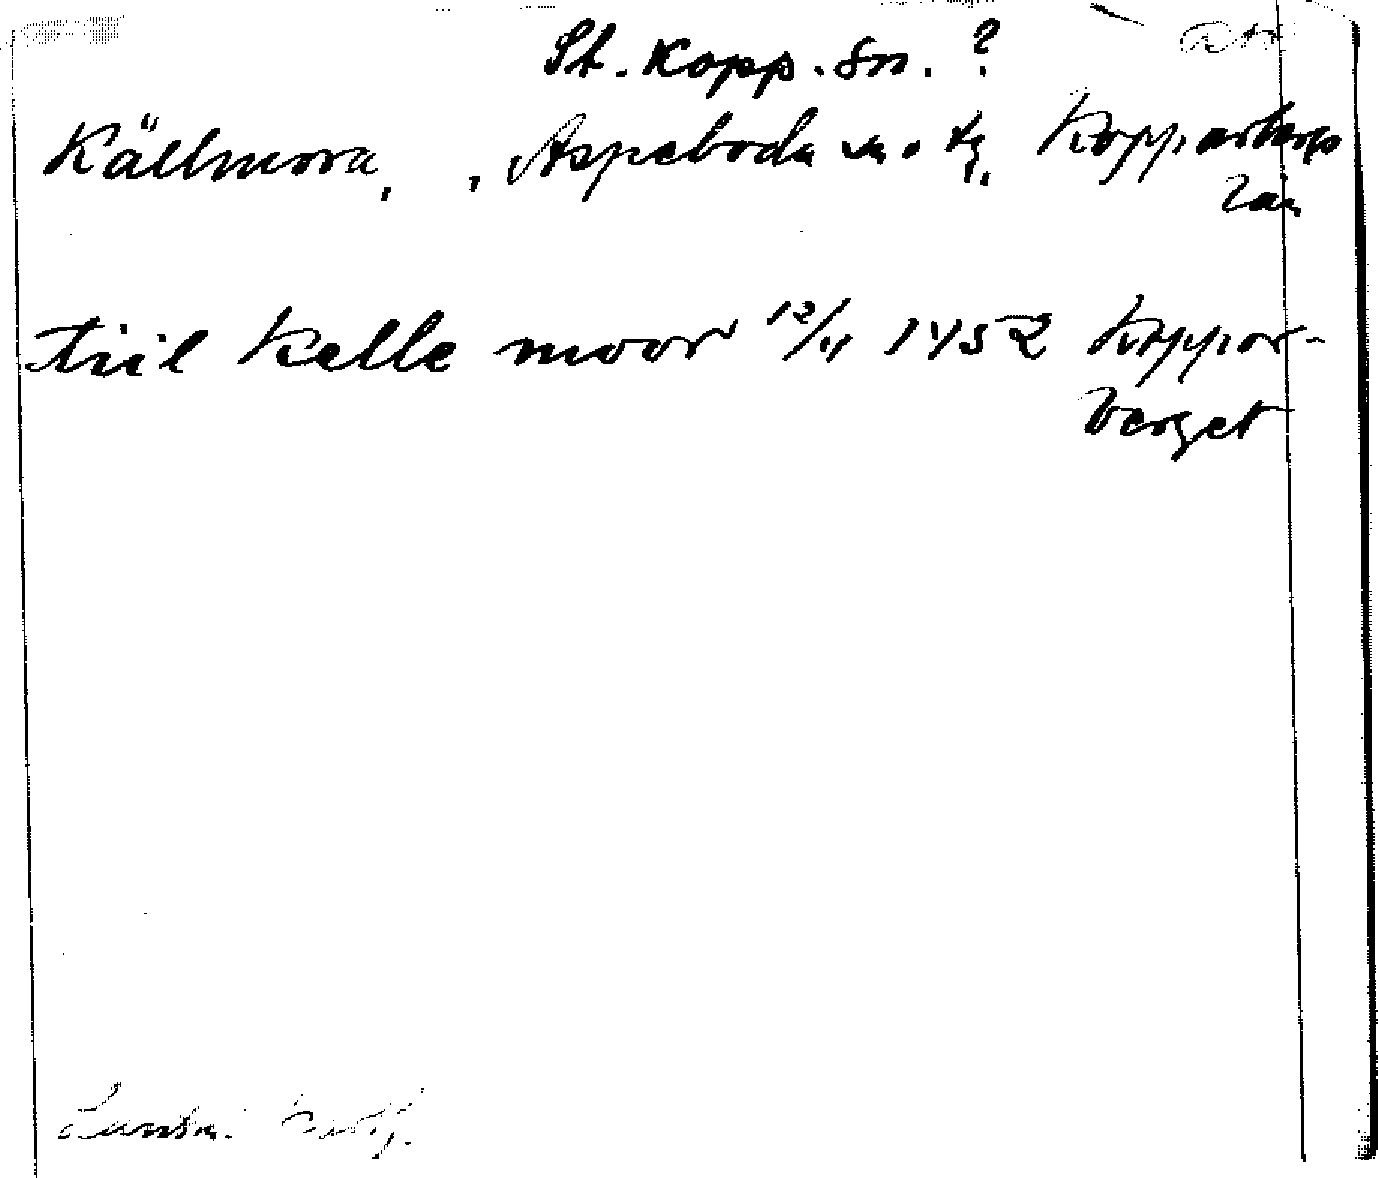 St. Kopp. sn. ?
Källmora, , Aspeboda sn. o. tg. Kopparbergs
län
tiil kelle moor 12/11 1452 Koppar-
berget